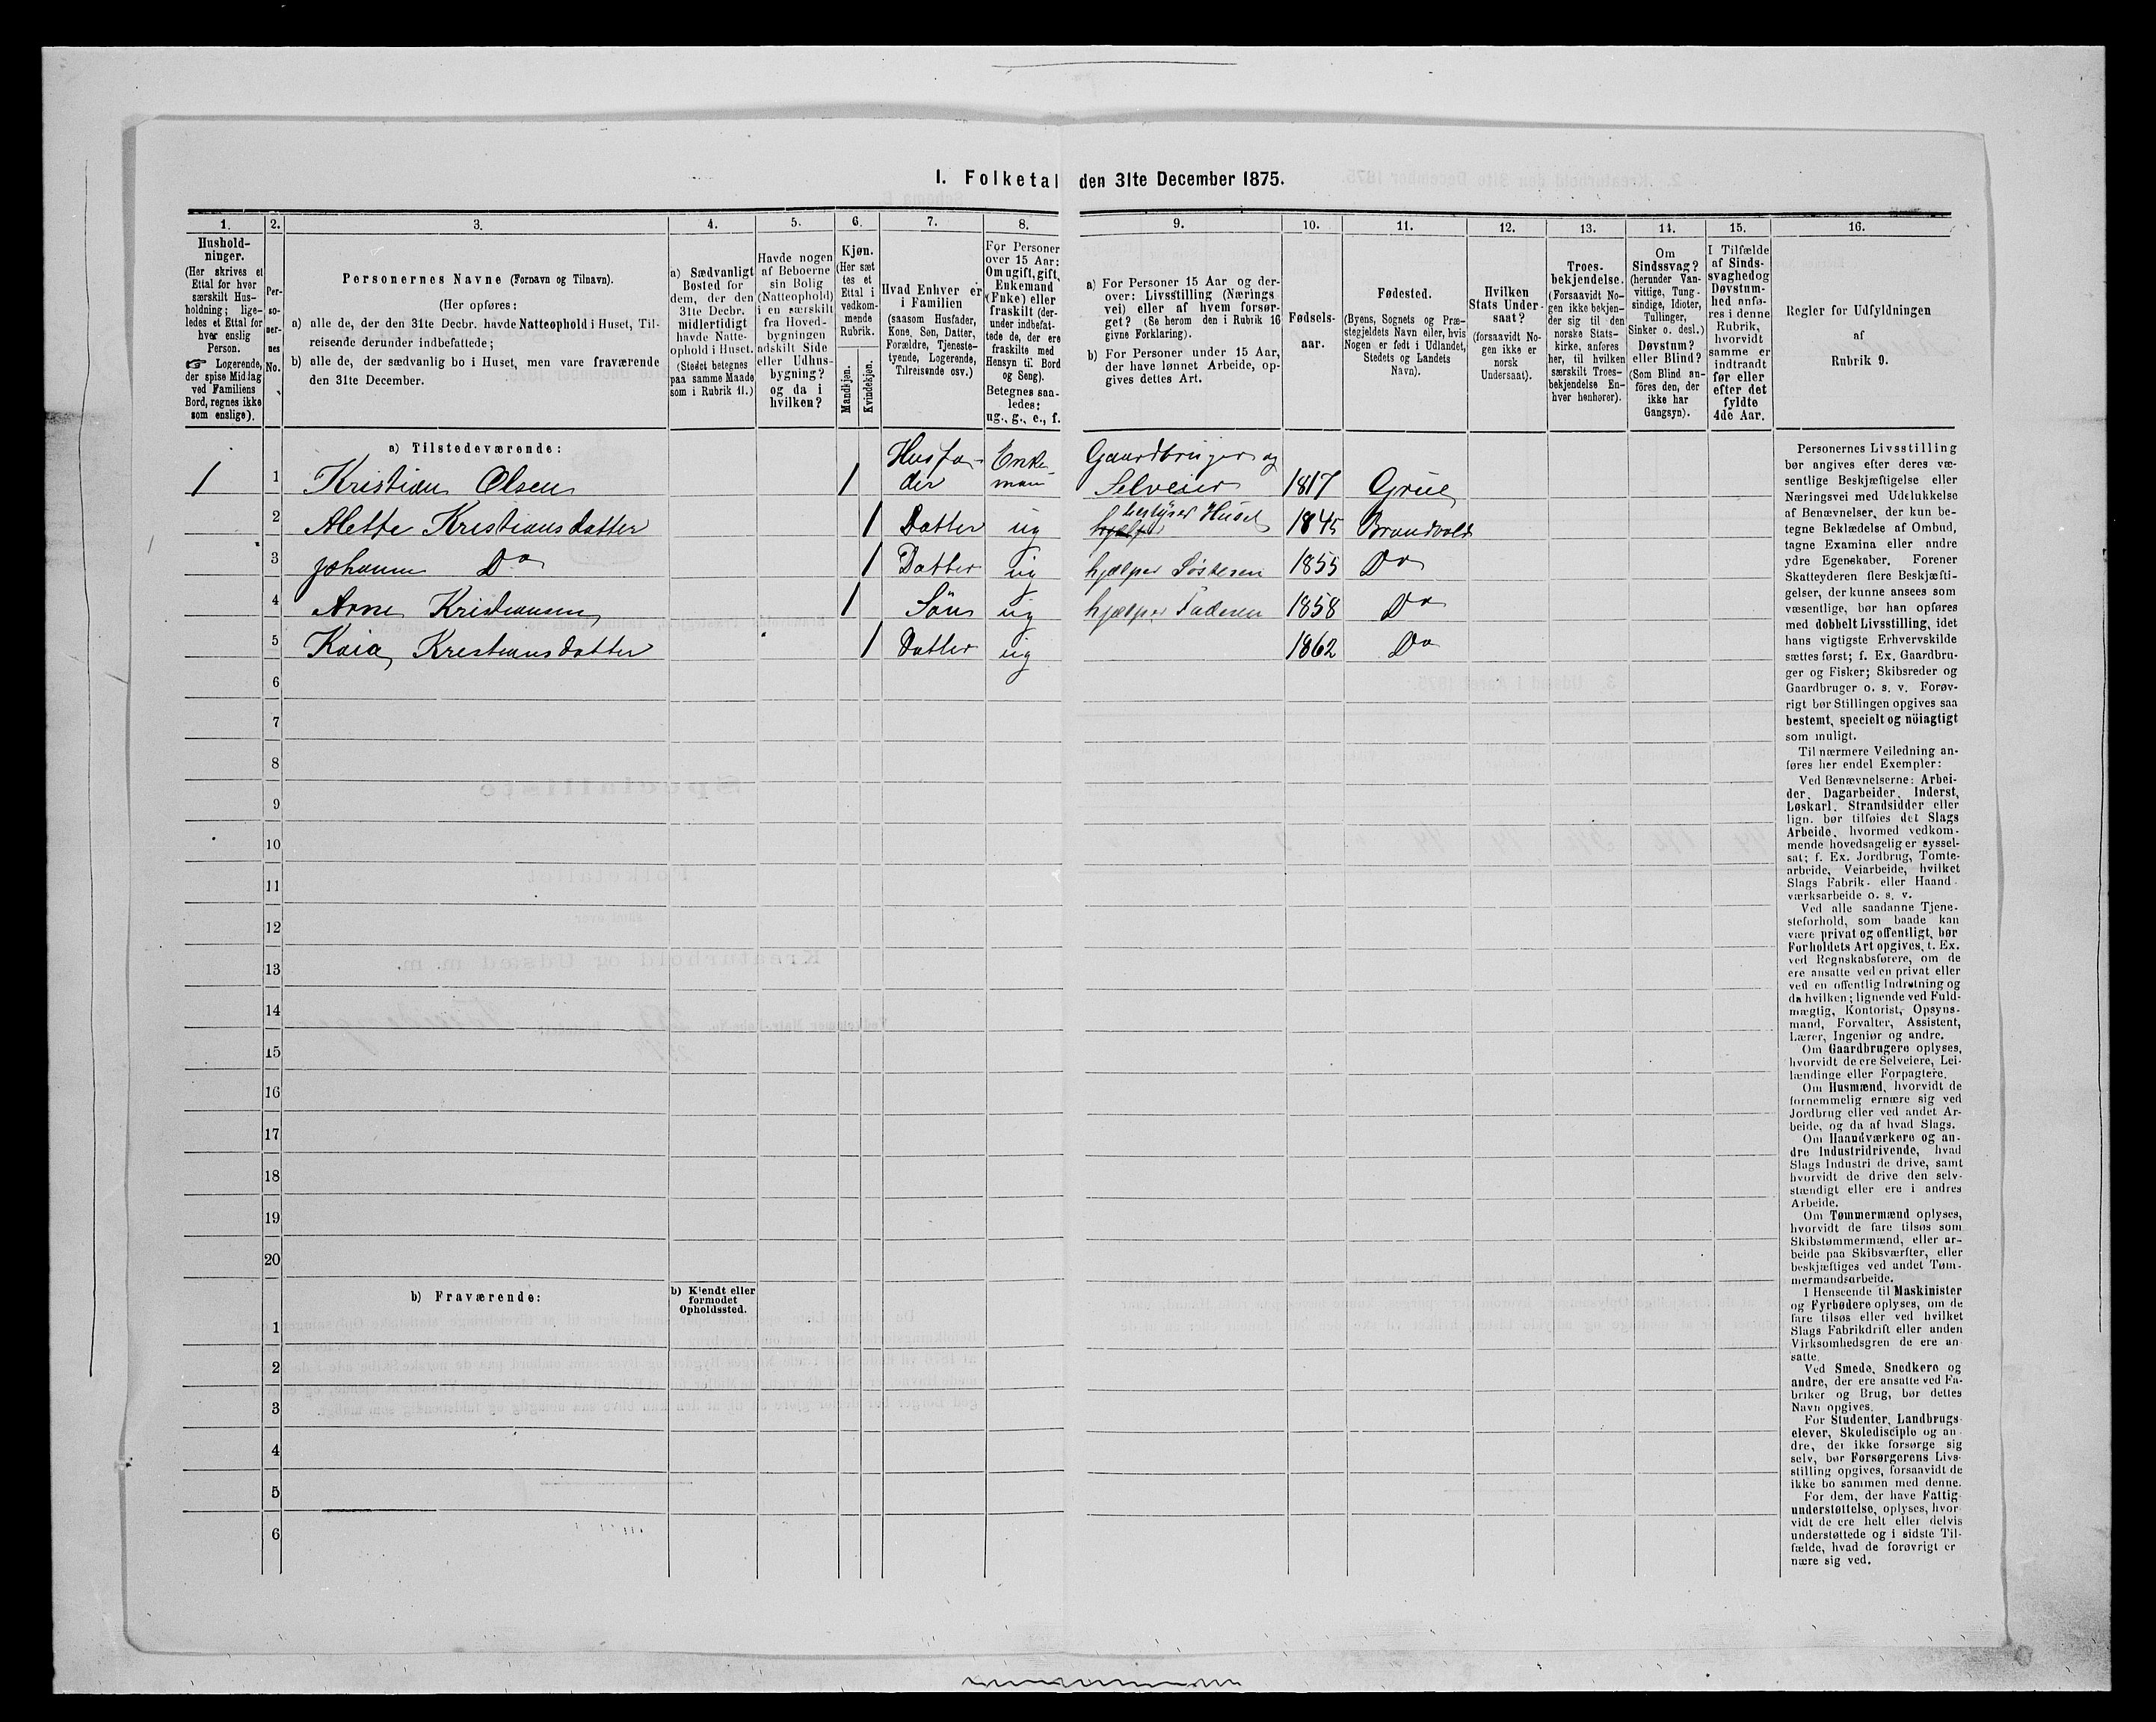 I. Folketal den 31te December 1875.
1.
2.
3.
4.
5.
6.
7.
8.
9.
10.
11.
12.
13.
14.
15.
16.
Hushold-
ninger.
(Her skrives et
Ettal for hver
særskilt Hus-
holdning; lige-
ledes et Ettal for
hver enslig
Person.
☞ Logerende,
der spise Middag
ved Familiens
Bord, regnes ikke
som enslige).
Per-
so-
ner-
nes
No.
Personernes Navne (Fornavn og Tilnavn).
(Her opføres:
a) alle de, der den 31te Decbr. havde Natteophold i Huset, Til-
reisende derunder indbefattede;
b) alle de, der sædvanlig bo i Huset, men vare fraværende
den 31te December.
a) Sædvanligt
Bosted for
dem, der den
31te Decbr.
midlertidigt
havde Natte-
ophold i Huset.
(Stedet betegnes
paa samme Maade
som i Rubrik 11.)
Havde nogen
af Beboerne
sin Bolig
(Natteophold)
i en særskilt
fra Hoved-
bygningen
adskilt Side
eller Udhus-
bygning?
og da i
hvilken?
Kjøn.
(Her sæt
tes et
Ettal i
vedkom-
mende
Rubrik.
Mandkjøn.
Kvindekjøn.
Hvad Enhver er
i Familien
(saasom Husfader,
Kone, Søn, Datter,
Forældre, Tjeneste-
tyende, Logerende,
Tilreisende osv.)
For Personer
over 15 Aar:
Om ugift, gift,
Enkemand
(Enke) eller
fraskilt (der-
under indbefat-
tede de, der ere
fraskilte med
Hensyn til Bord
og Seng).
Betegnes saa-
ledes:
ug., g., e., f.
a) For Personer 15 Aar og der-
over: Livsstilling (Nærings
vei) eller af hvem forsør-
get? (Se herom den i Rubrik 16
givne Forklaring).
b) For Personer under 15 Aar,
der have lønnet Arbeide, op-
gives dettes Art.
Fødsels-
aar.
Fødested.
(Byens, Sognets og Præ-
stegjeldets Navn eller, hvis
Nogen er født i Udlandet,
Stedets og Landets
Navn).
Hvilken
Stats Under-
saat?
(forsaavidt No-
gen ikke er
norsk
Undersaat).
Troes-
bekjendelse.
(Forsaavidt No-
gen ikke bekjen-
der sig til den
norske Stats-
kirke, anføres
her, til hvilken
særskilt Troes-
bekjendelse En-
hver henhører).
Om
Sindssvag?
(herunder Van-
vittige, Tung-
sindige, Idioter,
Tullinger,
Sinker o. desl.)
Døvstum?
eller Blind?
(Som Blind an-
føres den, der
ikke har
Gangsyn).
I Tilfælde
af Sinds-
svaghed og
Døvstum-
hed anfø-
res i denne
Rubrik,
hvorvidt
samme er
indtraadt
før eller
efter det
fyldte
4de Aar.
Regler for Udfyldningen
af
Rubrik 9.
a) Tilstedeværende:
1 1 Kristian Olsen 1 Husfa-
der Enke-
man Gaardbruger og
Selveier 1817 Grue
2 Alette Kristiansdatter 1 Datter ug bestyrer Huset 1845 Brandvold
3 Johanne Do 1 Datter ug hjælper Søsteren 1855 Do
4 Arne Kristiansen 1 Søn ug hjælper Faderen 1858 Do
5 Kaia Kristiansdatter 1 Datter ug 1862 Do
6
7
8
9
10
11
12
13
14
15
16
17
18
19
20
b) Fraværende:
b) Kjendt eller
formodet
Opholdssted.
1
2
3
4
5
6
Personernes Livsstilling
bør angives efter deres væ-
sentlige Beskjæftigelse eller
Næringsvei med Udelukkelse
af Benævnelser, der kun be-
tegne Beklædelse af Ombud,
tagne Examina eller andre
ydre Egenskaber. Forener
Skatteyderen flere Beskjæfti-
gelser, der kunne ansees som
væsentlige, bør han opføres
med dobbelt Livsstilling, idet
hans vigtigste Erhvervskilde
sættes først; f. Ex. Gaardbru-
ger og Fisker; Skibsreder og
Gaardbruger o. s. v. Forøv-
rigt bør Stillingen opgives saa
bestemt, specielt og nöiagtigt
som muligt.
Til nærmere Veiledning an-
føres her endel Exempler:
Ved Benævnelserne: Arbei-
der, Dagarbeider, Inderst,
Løskarl, Strandsidder eller
lign. bør tilføies det Slags
Arbeide, hvormed vedkom-
mende hovedsagelig er syssel-
sat; f. Ex. Jordbrug, Tomte-
arbeide, Veiarbeide, hvilket
Slags Fabrik- eller Haand-
værksarbeide o. s. v.
Ved alle saadanne Tjene-
steforhold, som baade kan
være privat og offentligt, bør
Forholdets Art opgives, t. Ex.
ved Regnskabsførere, om de
ere ansatte ved en privat eller
ved en offentlig Indretning og
da hvilken; lignende ved Fuld-
mægtig, Kontorist, Opsyns-
mand, Forvalter, Assistent,
Lærer, Ingeniør og andre.
Om Gaardbrugere oplyses,
hvorvidt de ere Selveiere, Lei-
lændinge eller Forpagtere.
Om Husmænd, hvorvidt de
fornemmelig ernære sig ved
Jordbrug eller ved andet Ar-
beide, og da af hvad Slags.
Om Haandværkere og an-
dre Industridrivende, hvad
Slags Industri de drive, samt
hvorvidt de drive den selv-
stændigt eller ere i andres
Arbeide.
Om Tømmermænd oplyses,
hvorvidt de fare tilsøs som
Skibstømmermænd, eller ar-
beide paa Skibsværfter, eller
beskjæftiges ved andet Tøm-
mermandsarbeide.
I Henseende til Maskinister
og Fyrbødere oplyses, om de
fare tilsøs eller ved hvilket
Slags Fabrikdrift eller anden
Virksomhedsgren de ere an-
satte.
Ved Smede, Snedkere og
andre, der ere ansatte ved Fa-
briker og Brug, bør dettes
Navn opgives.
For Studenter, Landbrugs-
elever, Skoledisciple og an-
dre, der ikke forsørge sig
selv, bør Forsørgerens Livs-
stilling opgives, forsaavidt de
ikke bo sammen med denne.
For dem, der have Fattig-
understøttelse, oplyses, hvor-
vidt de ere helt eller delvis
understøttede og i sidste Til-
fælde, hvad de forøvrigt er-
nære sig ved.